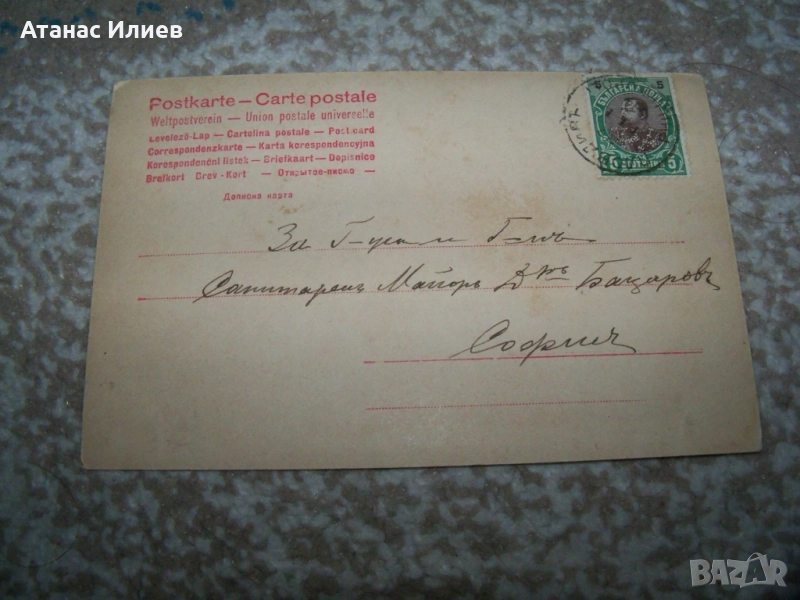 Атанас Илиев
Postkarte — Carte postale
Weltpostverein — Union postale universelle
Levelező-Lap — Cartolina postale — Post card
Correspondenzkarte — Karta korespondencyjna
Korespondenční lístek — Briefkaart — Dopisnice
Brefkort Brev-Kort — Открытое-писмо —
Дописна карта
5 5
5 5
За
Санитаренъ Майоръ Д-ръ Бацаровъ
София
BAZAR